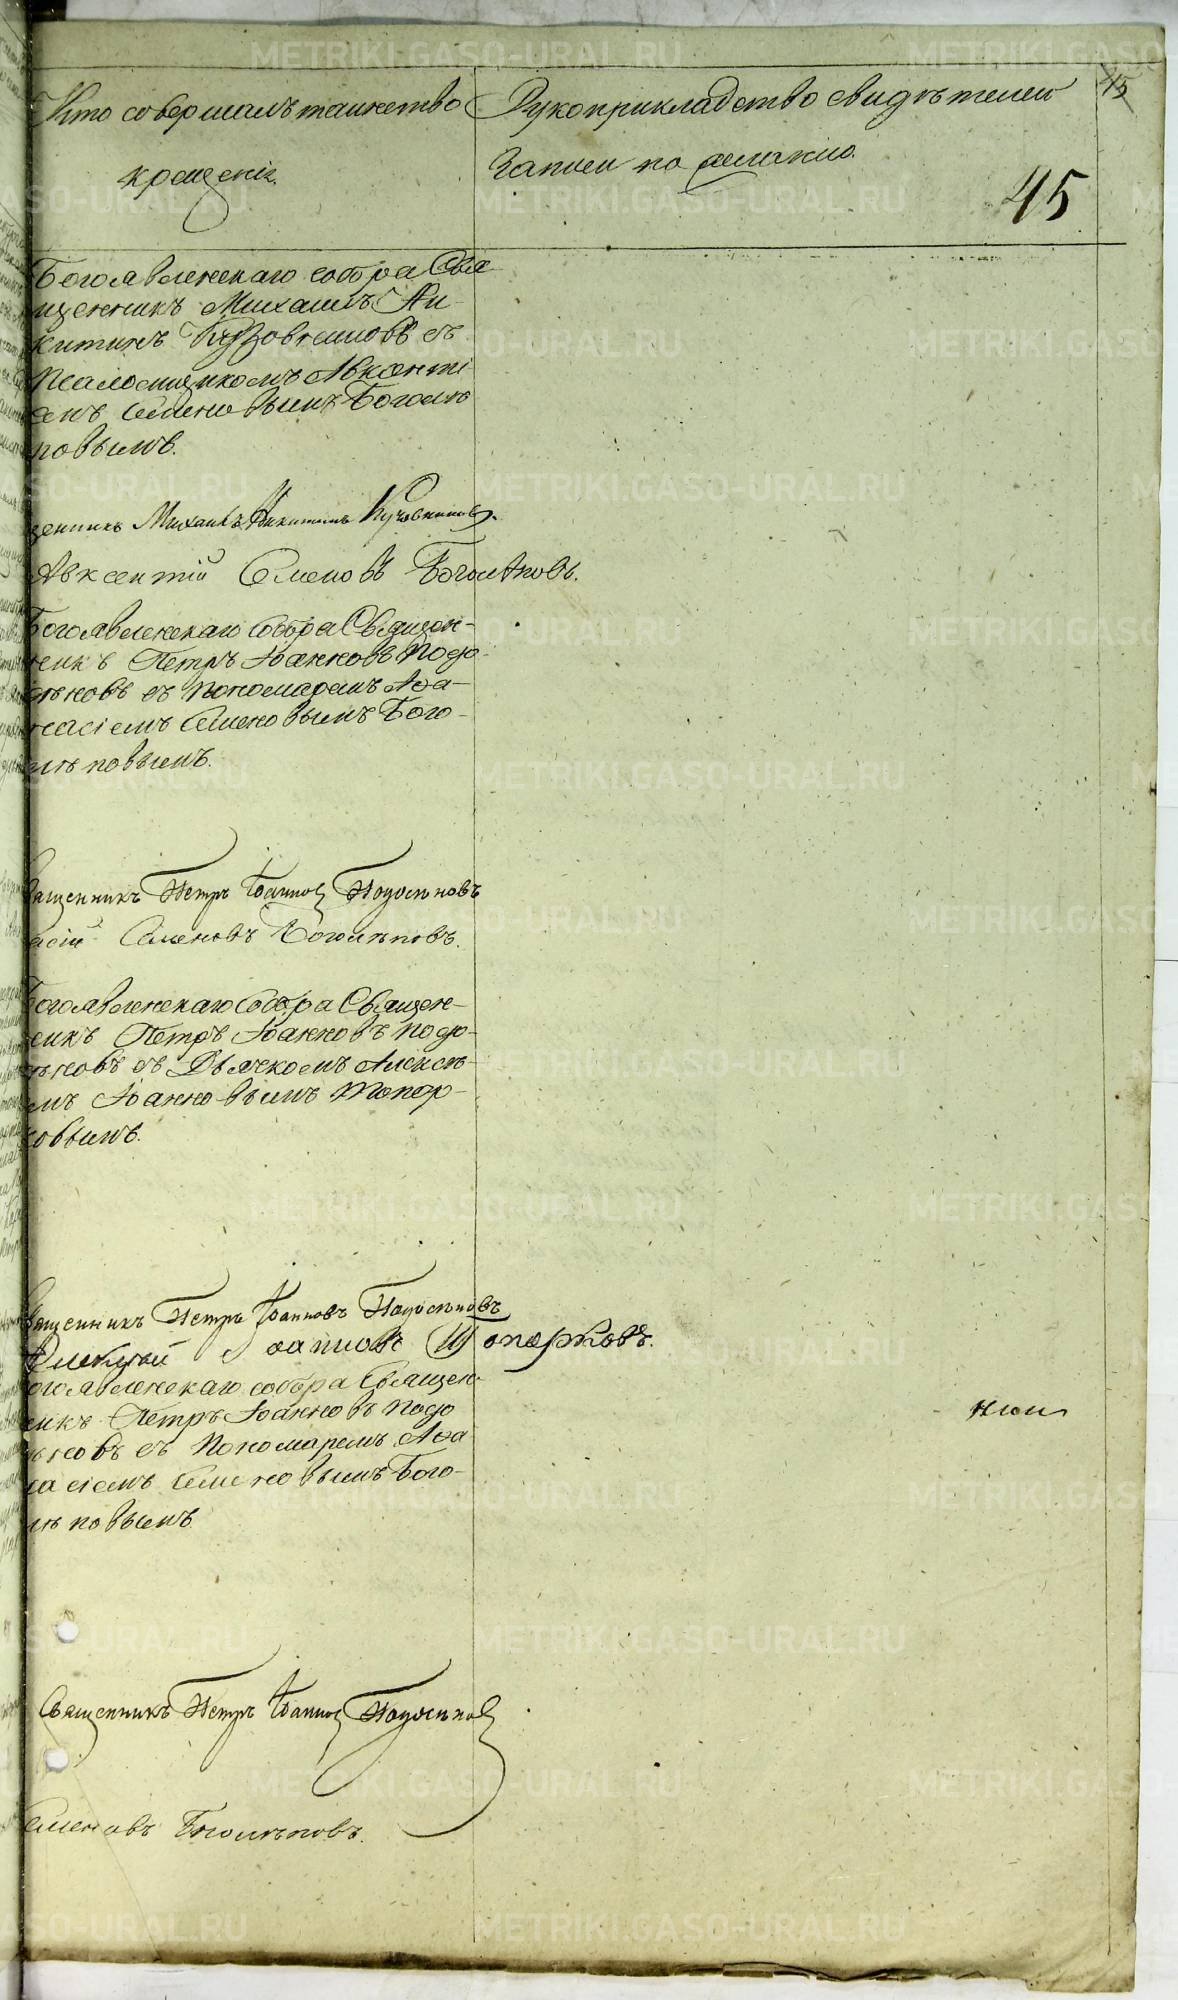 Кто совершалъ таинство
крещенія.
Рукоприкладство свидѣтелей
записи по желанію.
45
45
Богоявленскаго собора Свя
щенникъ Михаилъ Ни-
китинъ Кузовниковъ съ
Псаломщикомъ Авксенті
емъ Семеновымъ Боголѣ
повымъ.
щенникъ Михаилъ Никитинъ Кузовниковъ.
Авксентій Семеновъ Боголѣповъ.
Богоявленскаго Собора Священ-
никъ Петръ Іоанновъ Подо-
сѣновъ съ Пономаремъ Аѳа-
насіемъ Семеновымъ Бого-
лѣповымъ.
Священникъ Петръ Іоанновъ Подосѣновъ
асій Семеновъ Боголѣповъ.
Богоявленскаго Собора Священ-
никъ Петръ Іоанновъ Подо-
сѣновъ съ Дьячкомъ Алексѣ-
емъ Іоанновымъ Топор-
ковымъ.
Священникъ Петръ Іоанновъ Подосѣновъ
Алексѣй Іоанновъ Топорковъ.
Богоявленскаго собора Священ-
никъ Петръ Іоанновъ Подо
сѣновъ съ Пономаремъ Аѳа
насіемъ Семеновымъ Бого-
лѣповымъ
Священникъ Петръ Іоанновъ Подосѣновъ
Семеновъ Боголѣповъ.
METRIKI.GASO-URAL.RU